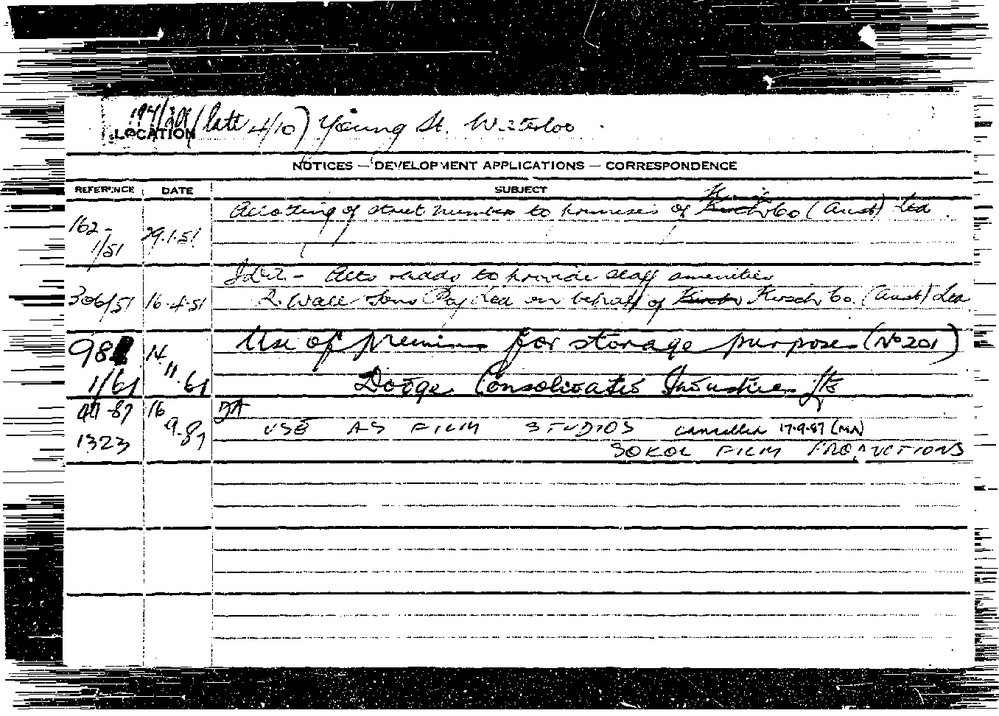 LOCATION 197/201 (late 4/10) Young St. Waterloo.
NOTICES — DEVELOPMENT APPLICATIONS — CORRESPONDENCE
REFERENCE DATE SUBJECT
162-1/51 29.1.51 of street number to premises of Kirsch Co (Aust) Ltd
306/51 16.4.51 Idtl. - Alts adds to provide staff amenities
Wall Sons Pty Ltd on behalf of Kirsch Co. (Aust) Ltd
98 1/61 14 11.61 Use of premises for storage purposes (No 201)
Dodge Consolidated Industries Ltd
44-87 1323 16 9.87 DA
USE AS FILM STUDIOS cancelled 17.9.87 (MA)
SOKOL FILM PRODUCTIONS